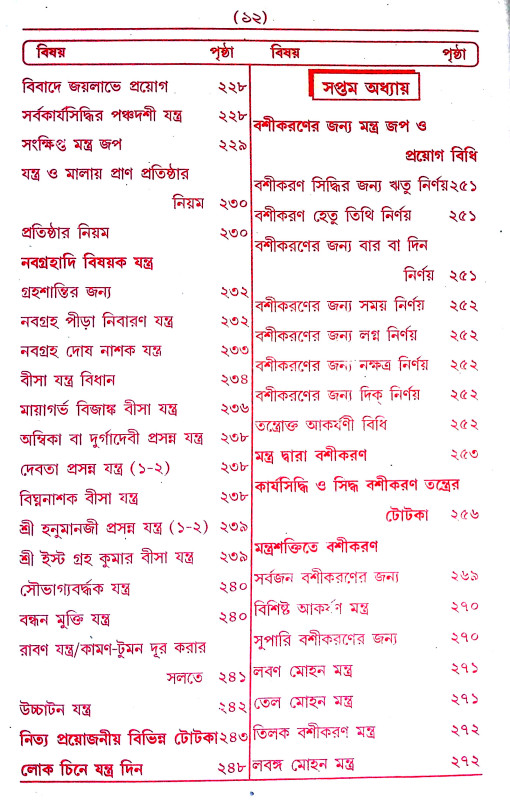 (১২)
বিষয় পৃষ্ঠা
বিবাদে জয়লাভে প্রয়োগ ২২৮
সর্বকার্যসিদ্ধির পঞ্চদশী যন্ত্র ২২৮
সংক্ষিপ্ত মন্ত্র জপ ২২৯
যন্ত্র ও মালায় প্রাণ প্রতিষ্ঠার
নিয়ম ২৩০
প্রতিষ্ঠার নিয়ম ২৩০
নবগ্রহাদি বিষয়ক যন্ত্র
গ্রহশান্তির জন্য ২৩২
নবগ্রহ পীড়া নিবারণ যন্ত্র ২৩২
নবগ্রহ দোষ নাশক যন্ত্র ২৩৩
বীসা যন্ত্র বিধান ২৩৪
মায়াগর্ভ বিজাঙ্ক বীসা যন্ত্র ২৩৬
অম্বিকা বা দুর্গাদেবী প্রসন্ন যন্ত্র ২৩৮
দেবতা প্রসন্ন যন্ত্র (১-২) ২৩৮
বিঘ্ননাশক বীসা যন্ত্র ২৩৮
শ্রী হনুমানজী প্রসন্ন যন্ত্র (১-২) ২৩৯
শ্রী ইস্ট গ্রহ কুমার বীসা যন্ত্র ২৩৯
সৌভাগ্যবর্দ্ধক যন্ত্র ২৪০
বন্ধন মুক্তি যন্ত্র ২৪০
রাবণ যন্ত্র/কামণ-টুমন দূর করার
সলতে ২৪১
উচ্চাটন যন্ত্র ২৪২
নিত্য প্রয়োজনীয় বিভিন্ন টোটকা ২৪৩
লোক চিনে যন্ত্র দিন ২৪৮
বিষয় পৃষ্ঠা
সপ্তম অধ্যায়
বশীকরণের জন্য মন্ত্র জপ ও
প্রয়োগ বিধি
বশীকরণ সিদ্ধির জন্য ঋতু নির্ণয় ২৫১
বশীকরণ হেতু তিথি নির্ণয় ২৫১
বশীকরণের জন্য বার বা দিন
নির্ণয় ২৫১
বশীকরণের জন্য সময় নির্ণয় ২৫২
বশীকরণের জন্য লগ্ন নির্ণয় ২৫২
বশীকরণের জন্য নক্ষত্র নির্ণয় ২৫২
বশীকরণের জন্য দিক্ নির্ণয় ২৫২
তন্ত্রোক্ত আকর্ষণী বিধি ২৫২
মন্ত্র দ্বারা বশীকরণ ২৫৩
কার্যসিদ্ধি ও সিদ্ধ বশীকরণ তন্ত্রের
টোটকা ২৫৬
মন্ত্রশক্তিতে বশীকরণ
সর্বজন বশীকরণের জন্য ২৬৯
বিশিষ্ট আকর্ষণ মন্ত্র ২৭০
সুপারি বশীকরণের জন্য ২৭০
লবণ মোহন মন্ত্র ২৭১
তেল মোহন মন্ত্র ২৭১
তিলক বশীকরণ মন্ত্র ২৭২
লবঙ্গ মোহন মন্ত্র ২৭২